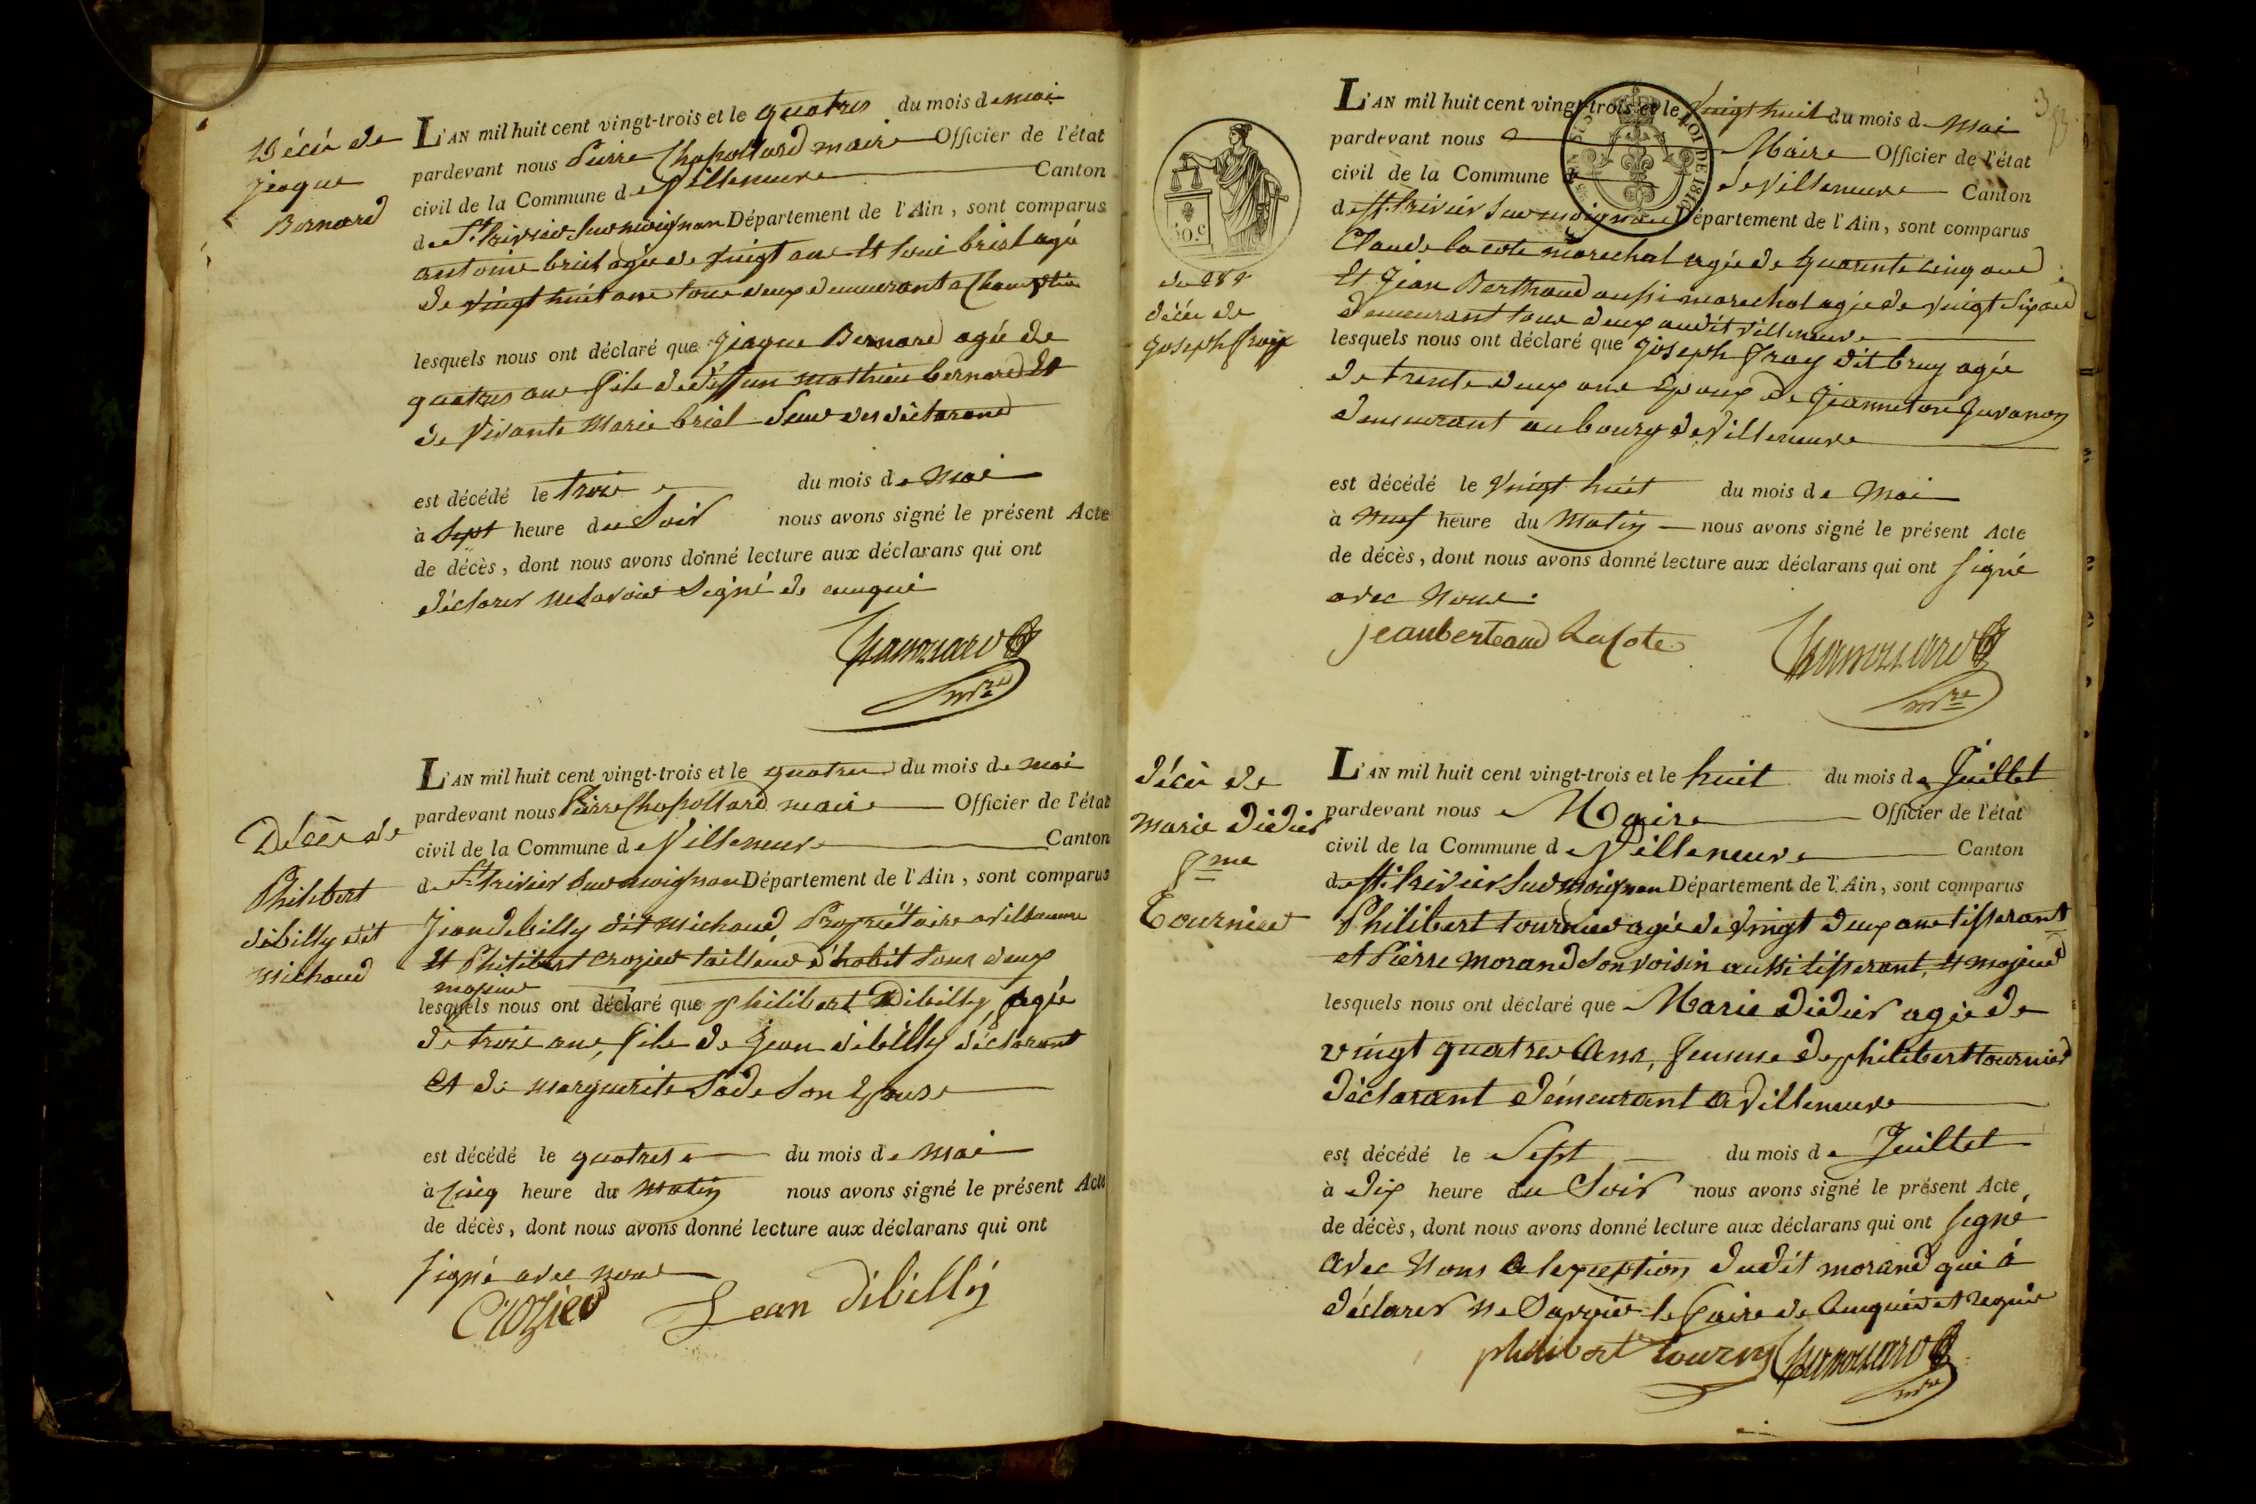 Décés de
Jeaque
Bernard
L'AN mil huit cent vingt-trois et le quatres du mois de mai
pardevant nous Pierre Chapollard maire Officier de l'état
civil de la Commune de Villeneuve Canton
de St. trivier Sur moignan Département de l'Ain, sont comparus
antoine briel agée de vingt ans et loui briel agé
de vingt huit ans tous deux demeurant a
lesquels nous ont déclaré que Jeaque Bernard agée de
quatres ans fils de deffun mathieu bernard Et
de vivante Marie briel Seur des déclarans
est décédé le trois du mois de Mai
à Sept heure du Soir nous avons signé le présent Acte
de décès, dont nous avons donné lecture aux déclarans qui ont
déclarer ne Savoir Signé de
mre
Décès de
Philibert
dibilly dit
Michaud
L'AN mil huit cent vingt-trois et le quatres du mois de mai
pardevant nous Pierre Chapollard maire Officier de l'état
civil de la Commune de Villeneuve Canton
de St. trivier Sur moignan Département de l'Ain, sont comparus
Jean Debilly dit Michaud Propriétaire a villeneuve
Et Philibert Crozier tailleur d'habit tous deux
majeur
lesquels nous ont déclaré que philibert Dibilly, agée
de trois ans, fils de Jean dibilly déclarant
et de marguerite Sade Son Epouse
est décédé le quatres du mois de Mai
à Cinq heure du Matin nous avons signé le présent Acte
de décès, dont nous avons donné lecture aux déclarans qui ont
signé avec nous
Crozier Jean dibilly
50 c
LOI DE 1816
du 28
décés de
Joseph froy
L'AN mil huit cent vingt-trois et le vingt huit du mois de Mai
pardevant nous Maire Officier de l'état
civil de la Commune de Villeneuve Canton
de St. trivier Sur moignan Département de l'Ain, sont comparus
Claude la cote marechal agée de quarente cinq ans
Et Jean Berthaud aussi marechal agée de vingt Six ans
demeurant tous deux audit villeneuve
lesquels nous ont déclaré que Joseph froy dit bruy agée
de trente deux ans Epoux de Jeanneton Juvanon
demeurant au bourg de Villeneuve
est décédé le Vingt huit du mois de Mai
à Neuf heure du Matin nous avons signé le présent Acte
de décès, dont nous avons donné lecture aux déclarans qui ont signé
avec Nous.
jeanberteaud Lacote
mre
décés de
marie Didier
fme
Tournier
L'AN mil huit cent vingt-trois et le huit du mois de Juillet
pardevant nous Maire Officier de l'état
civil de la Commune de Villeneuve Canton
de St. trivier Sur moignan Département de l'Ain, sont comparus
Philibert tournier agée de Vingt deux ans tisserant
et Pierre morand Son voisin aussi tisserant, Et majeur
lesquels nous ont déclaré que Marie Didier agée de
vingt quatres Ans, femme de philibert tournier
déclarant demeurant a Villeneuve
est décédé le Sept du mois de Juillet
à Dix heure du Soir nous avons signé le présent Acte
de décès, dont nous avons donné lecture aux déclarans qui ont signé
avec Nous a lexception dudit morand qui à
déclarer ne Savoir le faire de Enquis et requis
philibert tournier
mre